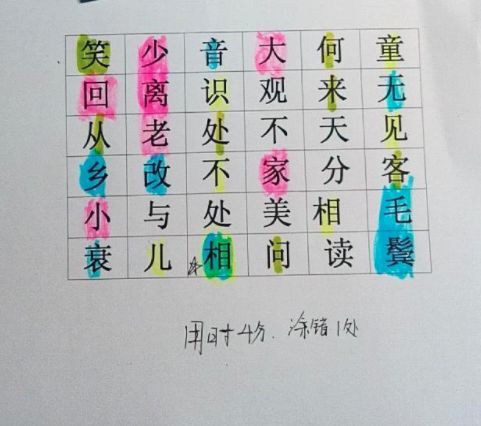 笑少音大何童
回离识观来无
从老处不天见
乡改不家分客
小与处美相毛
衰儿相问读鬓
用时4分.涂错1处